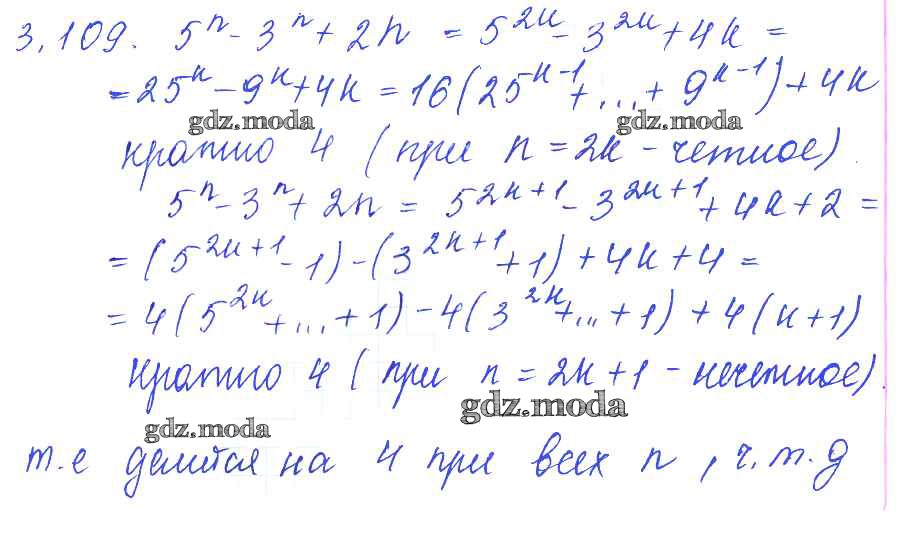 3.109. 5ⁿ - 3ⁿ + 2n = 5²ᵏ - 3²ᵏ + 4k =
= 25ᵏ - 9ᵏ + 4k = 16(25ᵏ⁻¹ + ... + 9ᵏ⁻¹) + 4k
gdz.moda gdz.moda
кратно 4 (при n = 2k - четное).
5ⁿ - 3ⁿ + 2n = 5²ᵏ⁺¹ - 3²ᵏ⁺¹ + 4k + 2 =
= (5²ᵏ⁺¹ - 1) - (3²ᵏ⁺¹ + 1) + 4k + 4 =
= 4(5²ᵏ + ... + 1) - 4(3²ᵏ + ... + 1) + 4(k + 1)
кратно 4 (при n = 2k + 1 - нечетное).
gdz.moda
gdz.moda
т.е делится на 4 при всех n, ч.т.д